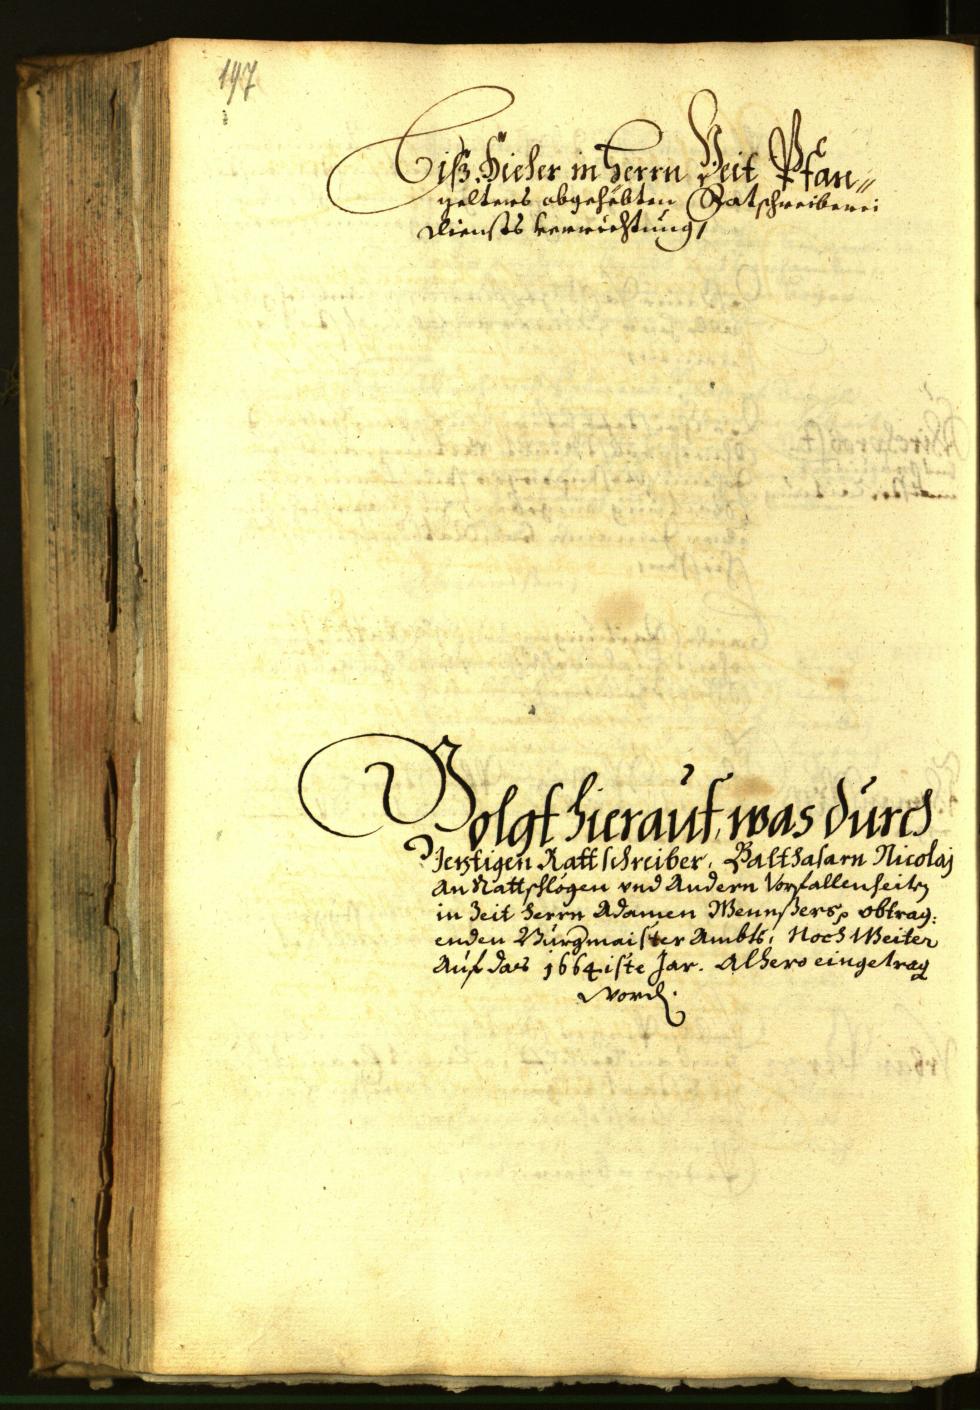 197
Biß. Hieher in Herrn Veit Pfan〃
gelters abgehebten Ratschreiberei
diensts verrichtung,
Volgt hierauf, was durch
Jeztigen Rattschreiber, Balthasarn Nicolaj
An Rattschlögen vnd Andern Vorfallenheiten
in Zeit Herrn Adamen Wennsers, obtrag:
enden Burgmaister Ambts, Noch Weiter
Auf das 1664iste Jar. Alhero eingetrag
word.